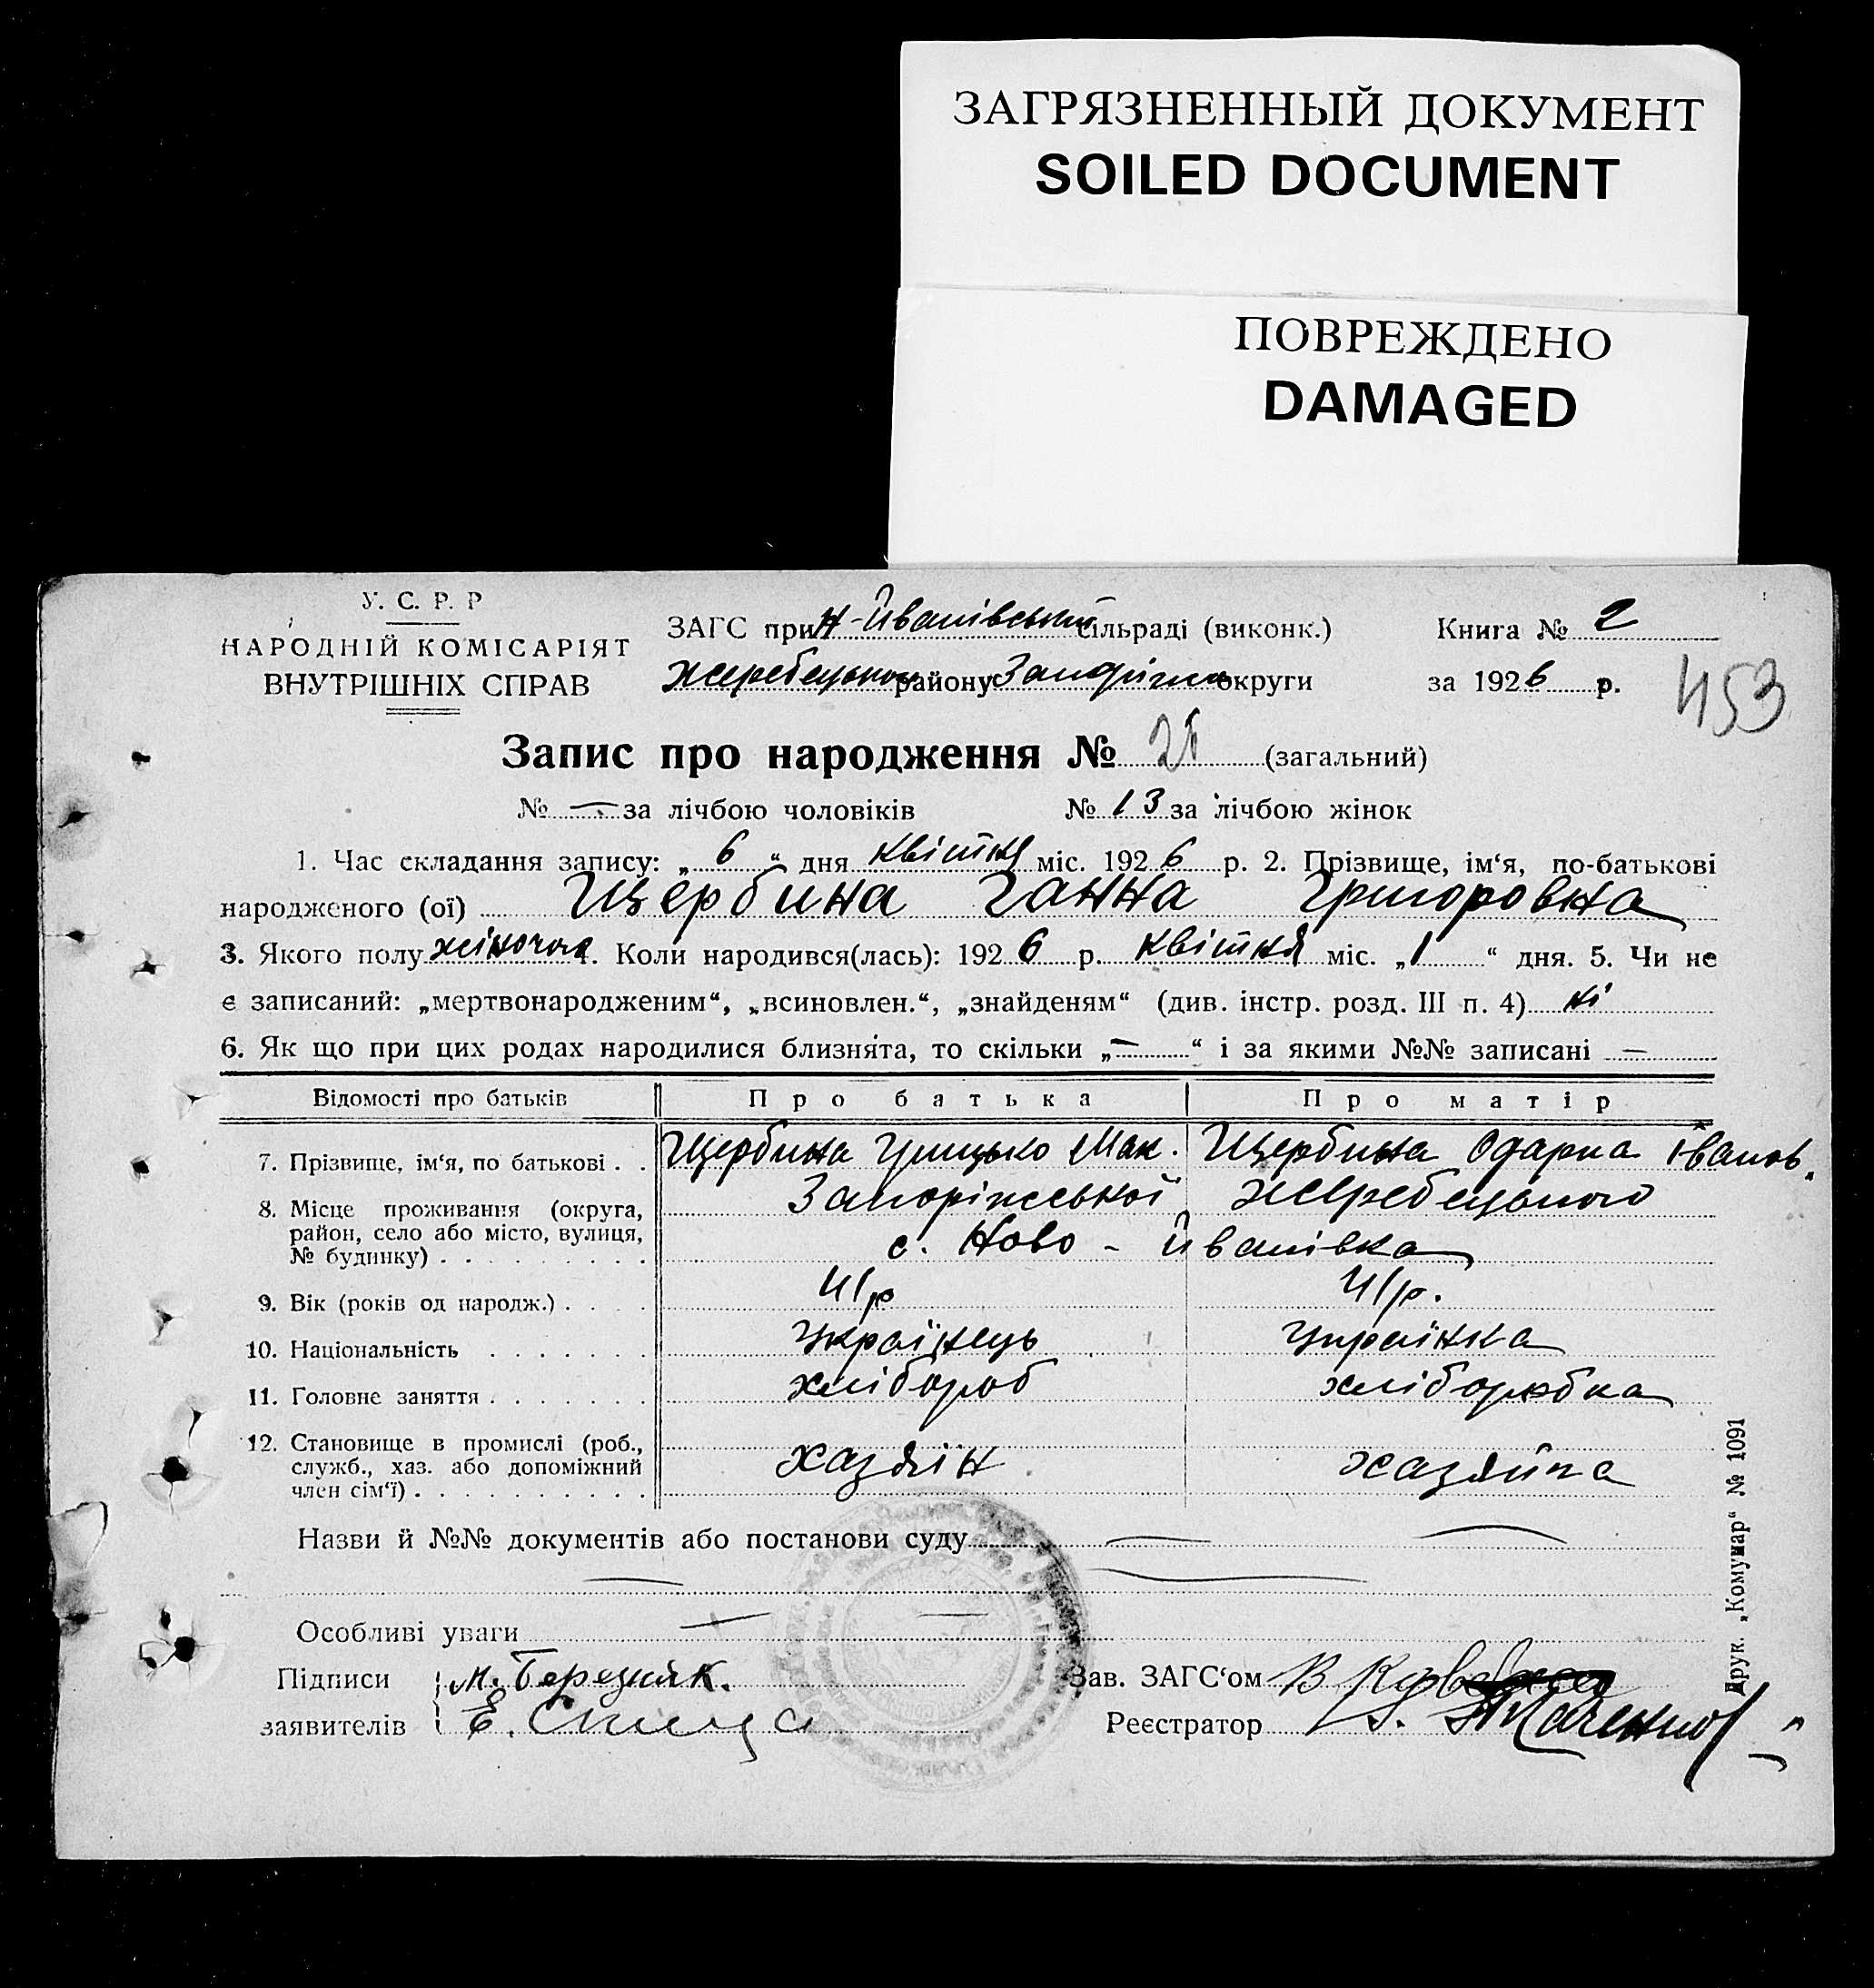 ЗАГРЯЗНЕННЫЙ ДОКУМЕНТ
SOILED DOCUMENT
ПОВРЕЖДЕНО
DAMAGED
У. С. Р. Р
НАРОДНІЙ КОМІСАРІЯТ
ВНУТРІШНІХ СПРАВ
ЗАГС при Н-Йванівській сільраді (виконк.)
Жеребецького району Запоріжск округи
Книга № 2
за 1926 р.
453
Запис про народження № (загальний)
№ — за лічбою чоловіків № 13 за лічбою жінок
1. Час складання запису: „ 6 “ дня квітня міс. 1926 р. 2. Прізвище, ім‘я, по-батькові
народженого (ої) Щербина Ганна Григоровна
3. Якого полу жіночого 4. Коли народився(лась): 1926 р. квітня міс. „ 1 “ дня. 5. Чи не
є записаний: „мертвонародженим“, „всиновлен.“, „знайденям“ (див. інстр. розд. III п. 4) ні
6. Як що при цих родах народилися близнята, то скільки „ — “ і за якими №№ записані —
Відомості про батьків Про батька Про матір
7. Прізвище, ім‘я, по батькові . . Щербина Грицько Мак. Щербина Одарка Іванов.
8. Місце проживання (округа, Запоріжської Жеребецького
район, село або місто, вулиця,
№ будинку) . . . . . . . . . с. Ново - Йванівка
9. Вік (років од народж.) . . . . 41р 41р.
10. Національність . . . . . . . Українець Українка
11. Головне заняття . . . . . . . хлібороб хліборобка
12. Становище в промислі (роб.,
служб., хаз. або допоміжний хазяїн хазяйка
член сім‘ї) . . . . . . . . . .
Назви й №№ документів або постанови суду — —
— —
Особливі уваги — —
Підписи М. Березняк. Зав. ЗАГС‘ом В
заявителів Е. Спиця Реєстратор
Друк. „Комунар“ № 1091